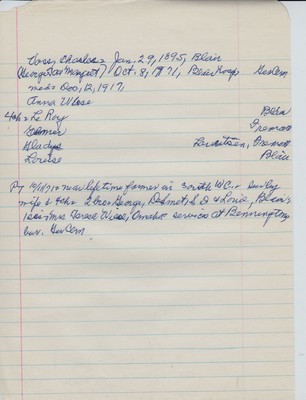 Voss, Charles - Jan. 29, 1895, Blair
(George & Margret) Oct. 8, 1971, Blair Hosp GerCem
md: Dec, 12, 1917
Anna Wiese
4ch: Le Roy Blair
Elmer Fremont
Gladys Fremont
Louise Blair
PT 10/10/71: was lifetime farmer in south WC.; surv by
wife & 4ch: 2 bros George, & Louie, Blair;
1 sis: Mrs Wiese, Omaha: service at Bennington;
bur. GerCem